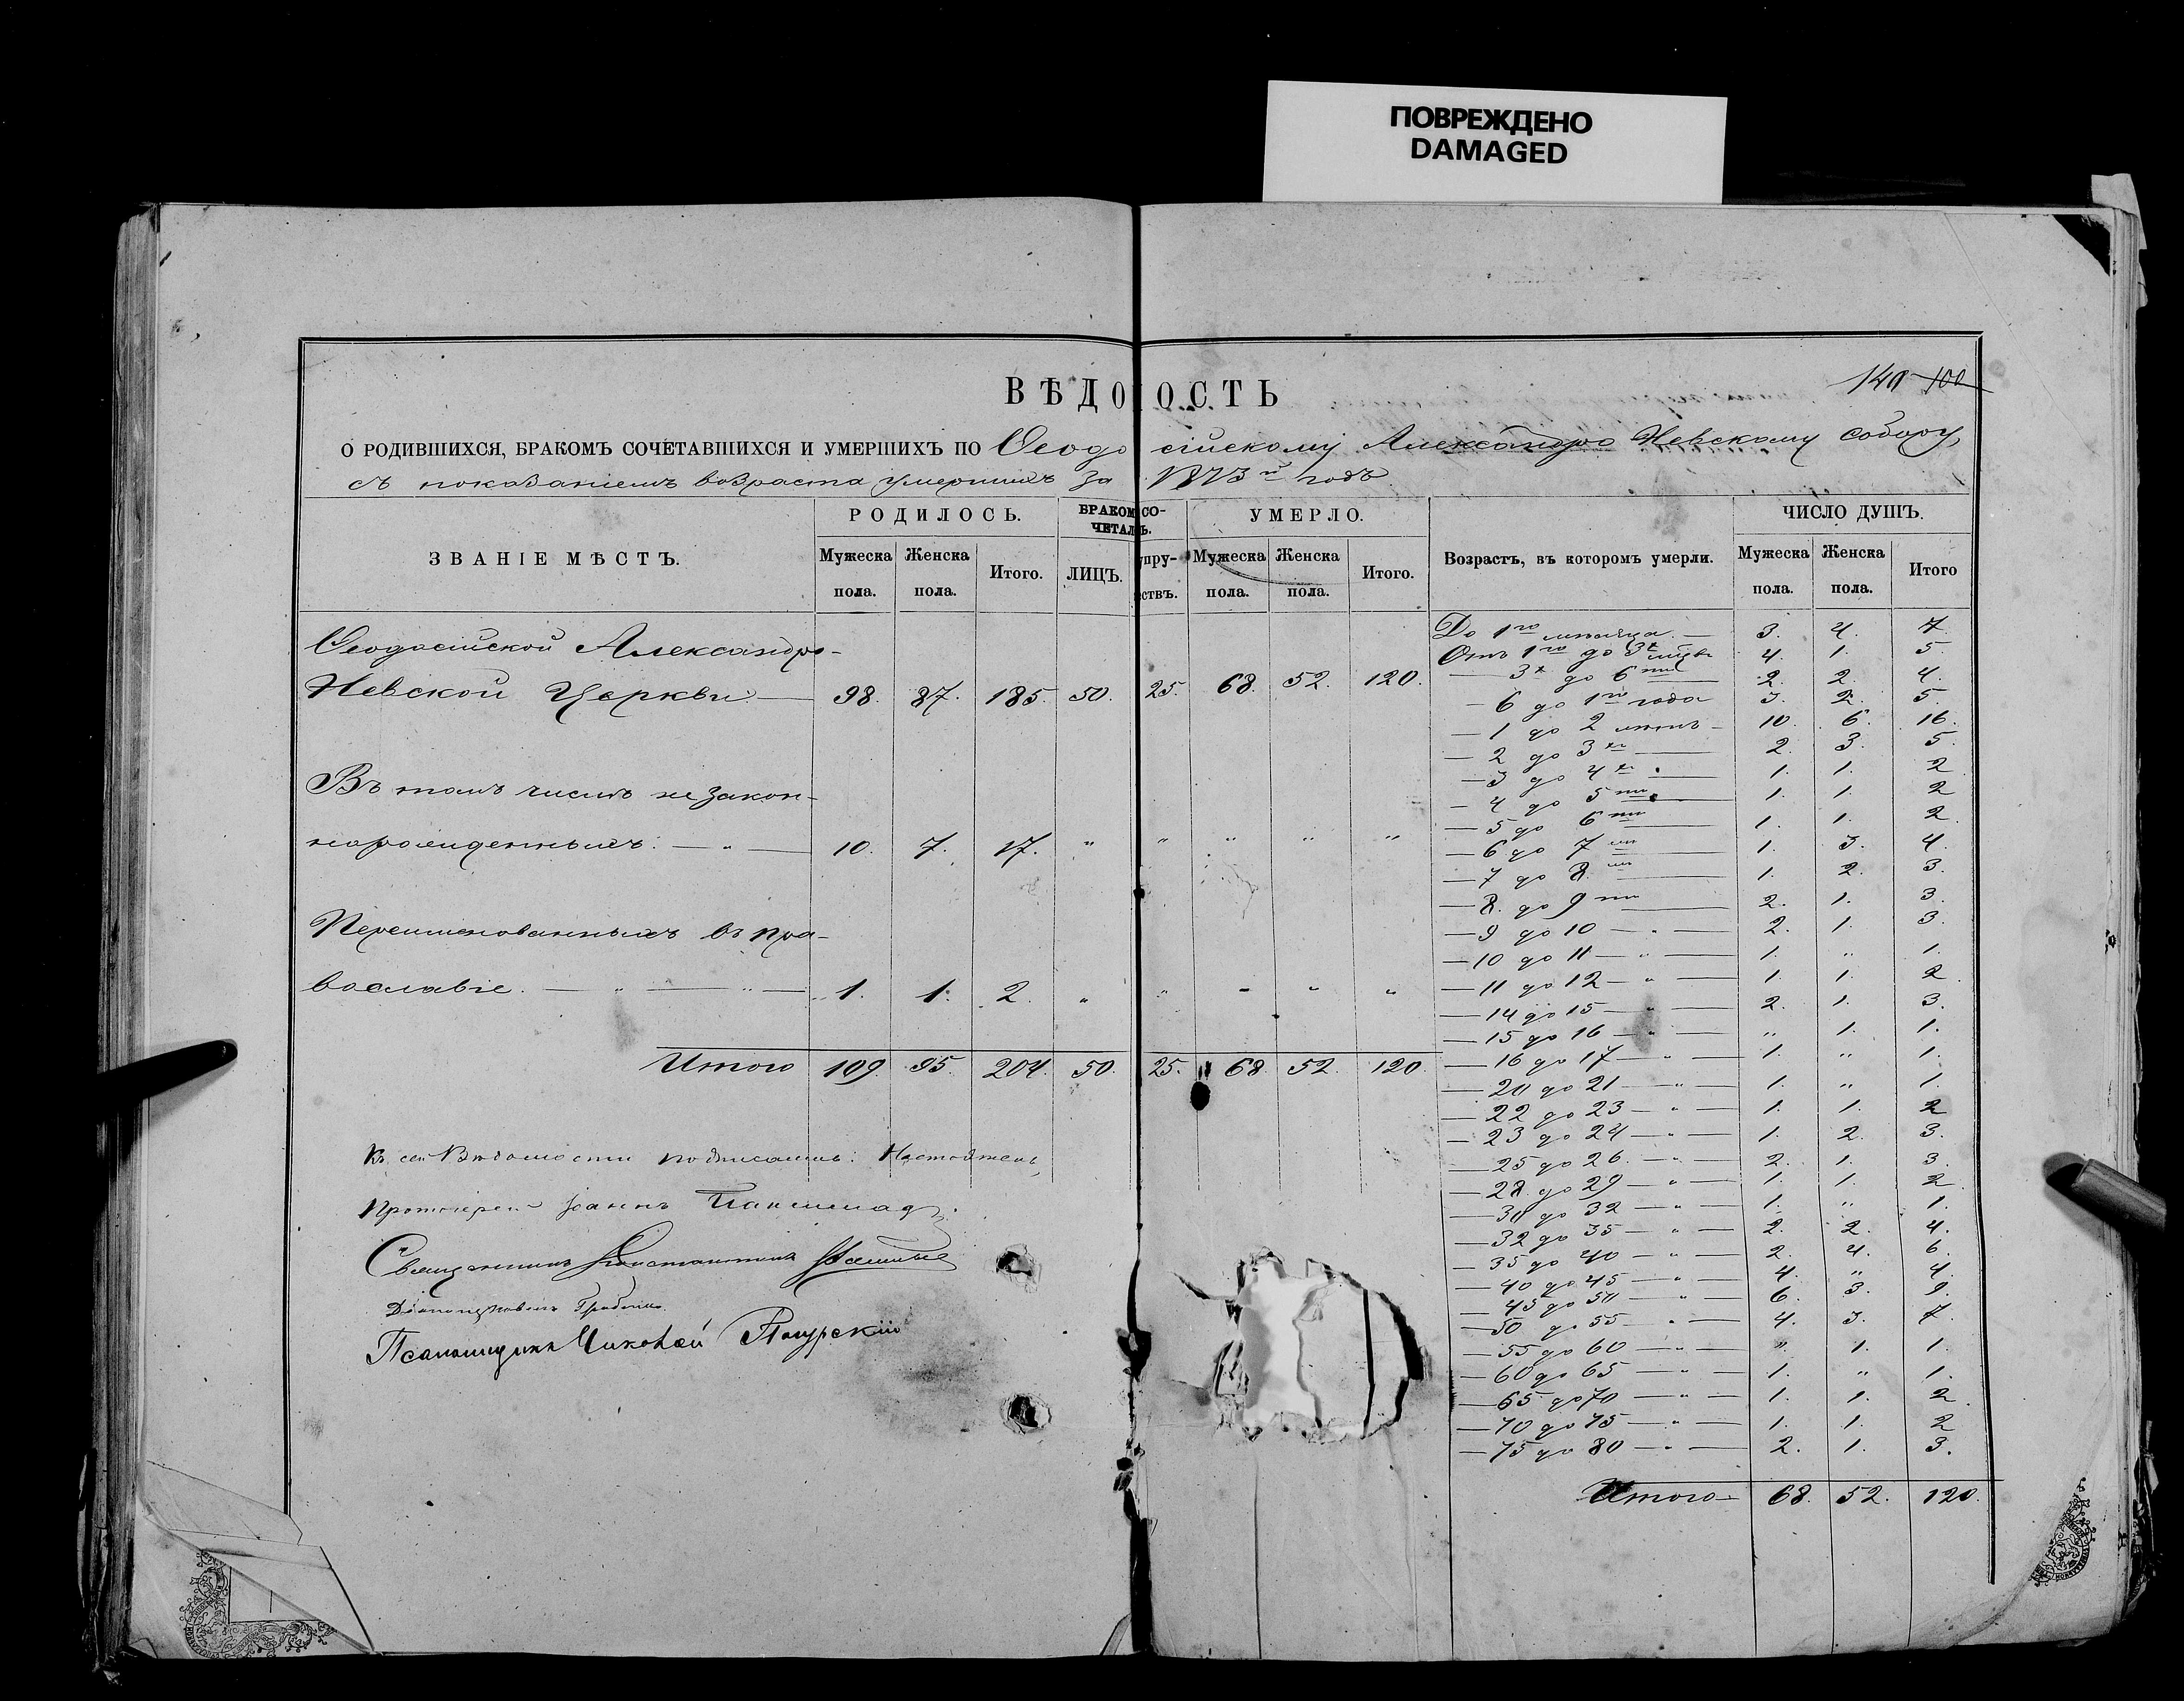 ПОВРЕЖДЕНО
DAMAGED
140 100
ВѢДОМОСТЬ
О РОДИВШИХСЯ, БРАКОМЪ СОЧЕТАВШИХСЯ И УМЕРШИХЪ ПО Ѳеодосійскому Александро Невскому Собору,
съ показаніемъ возраста умершихъ за 1873й годъ.
ЗВАНІЕ МѢСТЪ. РОДИЛОСЬ. БРАКОМ СО- УМЕРЛО. Возрастъ, въ котором умерли. ЧИСЛО ДУШЪ.
ЧЕТАЛ Ь.
Мужеска пола. Женска пола. Итого. ЛИЦЪ. упру- ствъ. Мужеска пола. Женска пола. Итого. Мужеска пола. Женска пола. Итого
Ѳеодосійской Александро-
Невской Церкви. — 98. 87. 185. 50. 25. 68. 52. 120.
Въ томъ числѣ незакон-
норожденныхъ: — " — 10. 7. 17. " " " " "
Переименованныхъ въ пра-
вославіе. — " — " — 1. 1. 2. " " " " "
Итого 109. 95. 204. 50. 25. 68. 52. 120.
Къ сей Вѣдомости подписались: Настоятель,
Протоіерей Іоаннъ
Священникъ Константинъ
Псаломщикъ Николай
До 1го мѣсяца. — 3. 4. 7.
Отъ 1го до 3х мѣсяц 4. 1. 5.
— 3х до 6ти — 2. 2. 4.
— 6 до 1го года 3. 2. 5.
— 1 до 2 лѣтъ — 10. 6. 16.
— 2 до 3хъ — 2. 3. 5.
— 3 до 4хъ — 1. 1. 2
— 4 до 5ти — 1. 1. 2
— 5 до 6ти — 1. 1. 2.
— 6 до 7ми — 1. 3. 4.
— 7 до 8ми — 1. 2. 3.
— 8. до 9ти — 2. 1. 3.
— 9 до 10 — " — 2. 1. 3.
— 10 до 11 — " — 1. " 1.
— 11 до 12 — " — 1. 1. 2.
— 14 до 15 — " — 2. 1. 3.
— 15 до 16 — " — " 1. 1.
— 16 до 17 — " — 1. " 1.
— 20 до 21 — " — 1. " 1.
— 22 до 23 — " — 1. 1. 2
— 23 до 24 — " — 1. 2. 3.
— 25 до 26. — " — 2. 1. 3.
— 28. до 29 — " — 1. 1. 2.
— 30 до 32 — " — 1. " 1.
— 32 до 35 — " — 2. 2. 4.
— 35 до 40 — " — 2. 4. 6.
— 40 до 45 — " — 4. " 4.
— 45 до 50 — " — 6. 3. 9.
— 50 до 55 — " — 4. 3. 7.
— 55 до 60 — " — " 1. 1.
— 60 до 65 — " — 1. " 1.
— 65 до 70 — " — 1. 1. 2.
— 70 до 75 — " — 1. 1. 2
— 75 до 80 — " — 2. 1. 3.
Итого — 68. 52. 120.